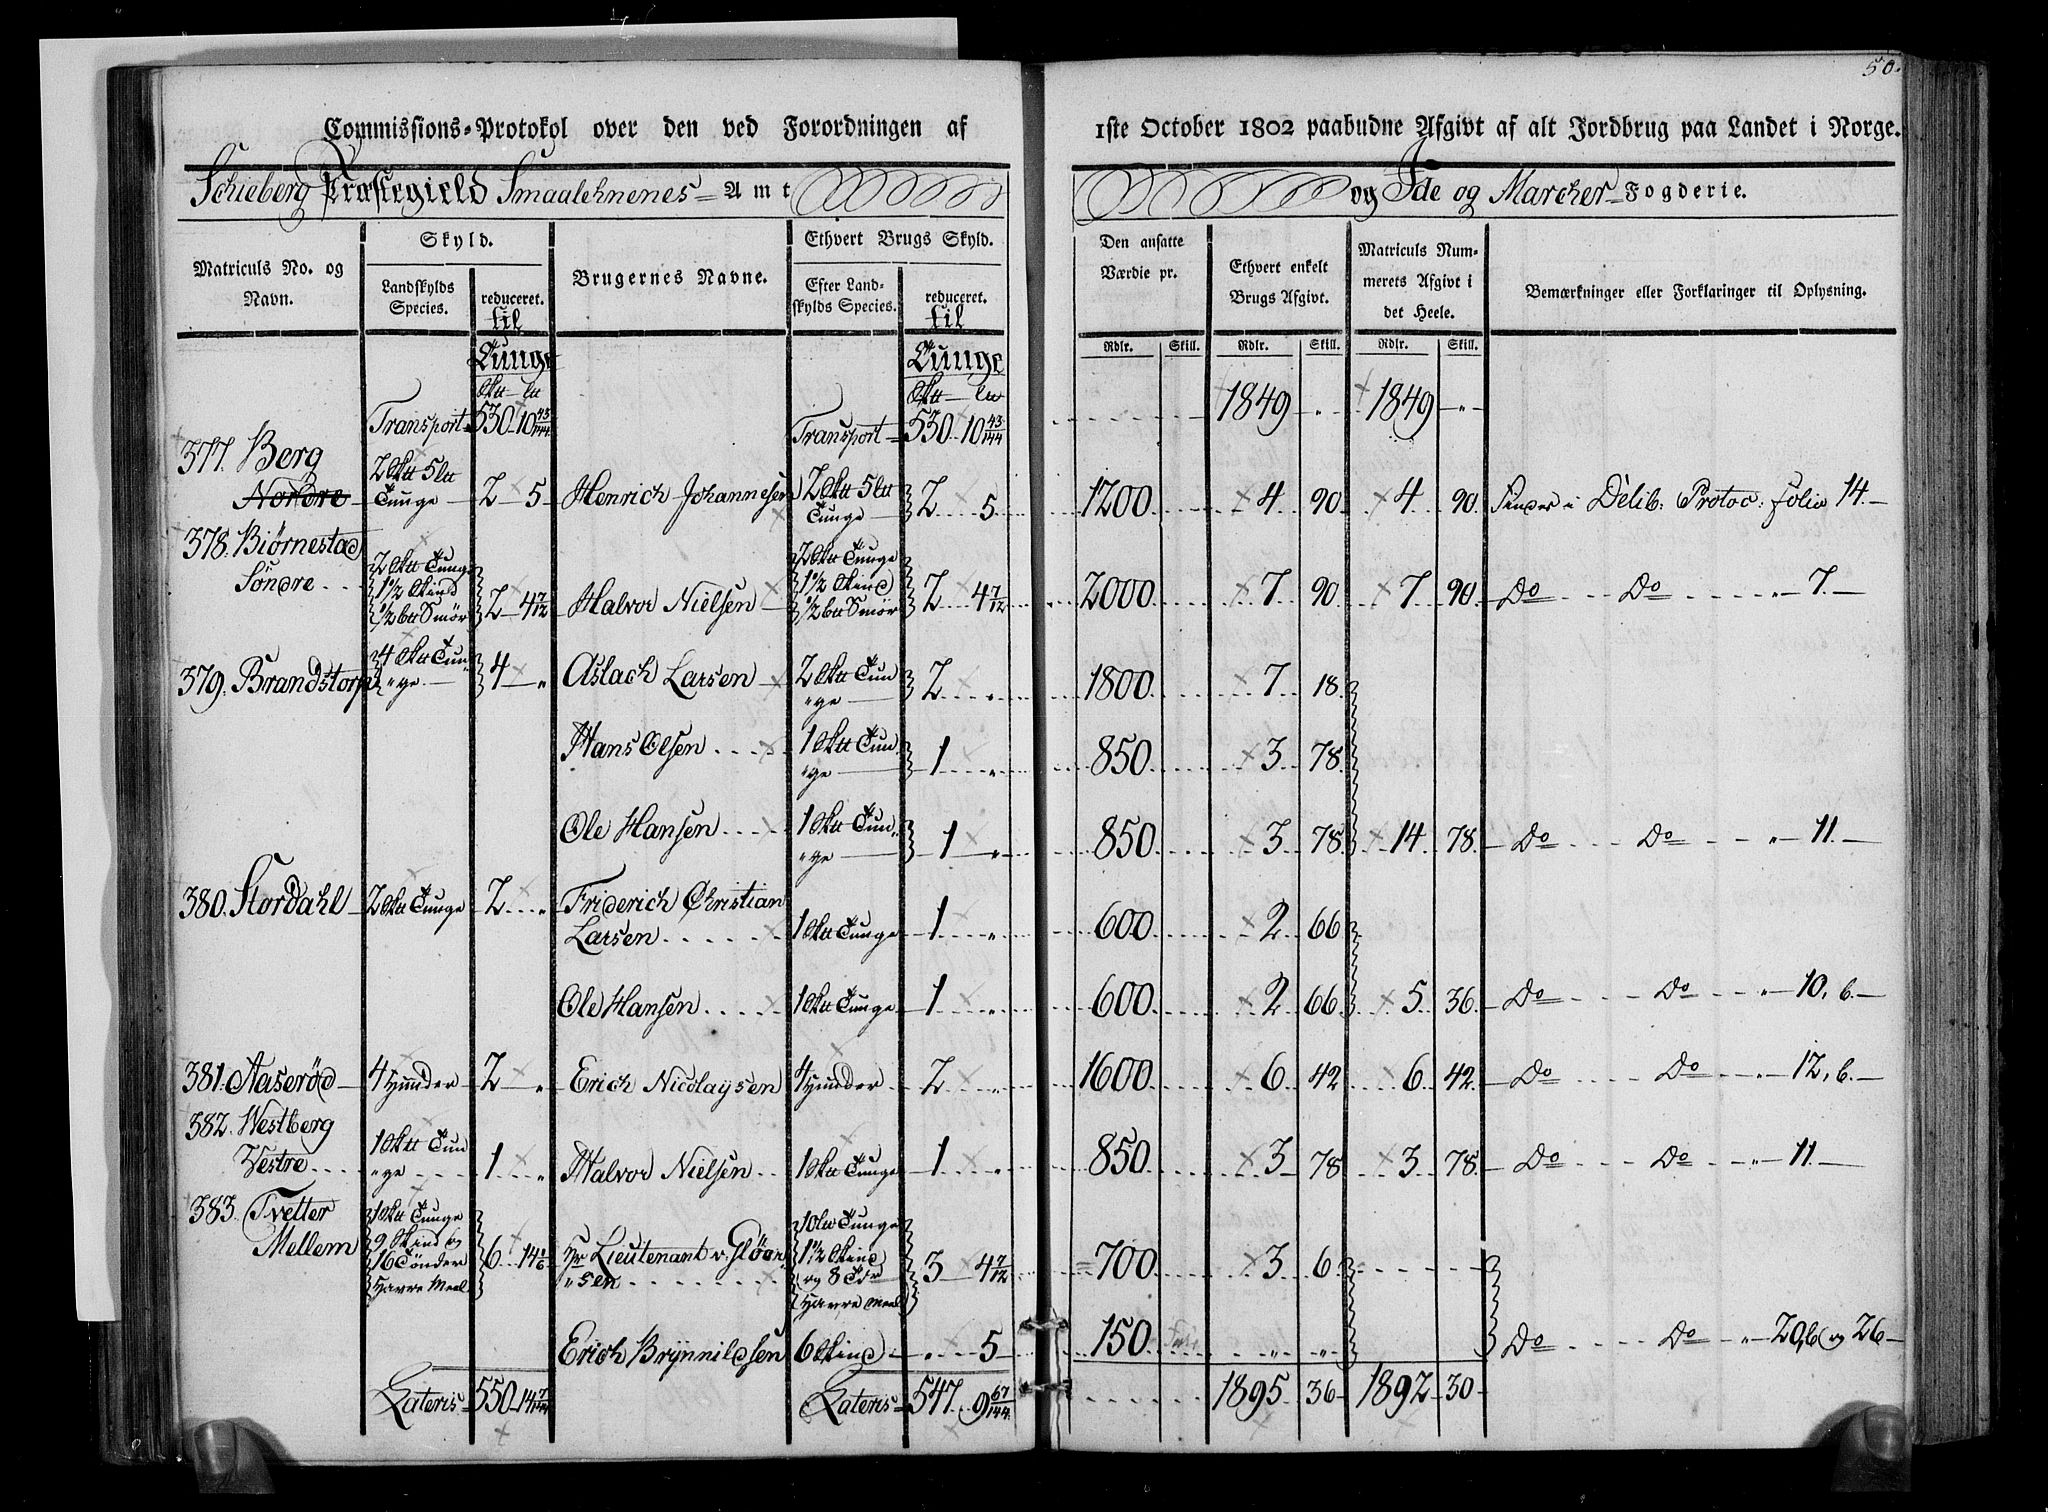 50.
Commissions-Protokol over den ved Forordningen af 1ste October 1802 paabudne Afgivt af alt Jordbrug paa Landet i Norge.
Schieberg Præstegield Smaalehnenes Amt og Ide og Marcher Fogderie.
Matriculs No. og Navn.
Skyld.
Landskylds Species.
reduceret. til Tunge
Sktt ltt
Brugernes Navne.
Ethvert Brugs Skyld.
Efter Landskylds Species.
reduceret. til Tunge
Sktt ltt
Den ansatte Værdie pr.
Rdlr. Skill.
Ethvert enkelt Brugs Afgivt.
Rdlr. Skill.
Matriculs Nummerets Afgivt i det Heele.
Rdlr. Skill.
Bemærkninger eller Forklaringer til Oplysning.
Transport 530 10 43/144 Transport 530 10 43/144 1849 " 1849 "
377. Berg
Nordre 2 Sktt 5 ltt Tunge 2 5 Henrich Johannesen 2 Sktt 5 ltt Tunge 2 5. 1200 4 90 4 90. Findes i Delib: Protoc: Folio 14.
378. Biørnestad
Söndre 2 Sktt Tunge 1 1/2 Skind 1/2 btt Smör 2 4 7/12 Halvor Nielsen 2 Sktt Tunge 1 1/2 Skind 1/2 btt Smör 2 4 7/12 2000 7 90 7 90. Do Do " 7.
379. Brandstorp 4 Sktt Tun "ge 4 " Aslach Larsen 2 Sktt Tun "ge 2 " 1800 7 18.
Hans Olsen 1 Sktt Tun "ge 1 " 850 3 78.
Ole Hansen 1 Sktt Tun "ge 1 " 850 3 78. 14 78. Do Do " 11.
380. Stordahl 2 Sktt Tunge 2 " Friderich Christian
Larsen 1 Sktt Tunge 1 " 600 2 66
Ole Hansen 1 Sktt Tunge 1 " 600 2 66 5 36. Do Do " 10, b.
381. Aaseröd 4 Hunder 2 " Erich Nicolaysen 4 Hunder 2 " 1600 6 42 6 42. Do Do " 12, b.
382. Westberg
Vestre 1 Sktt Tun "ge 1 " Halvor Nielsen 1 Sktt Tunge 1 " 850 3 78 3 78. Do Do " 11.
383. Tvetter
Mellem 1 Sktt Tunge 9 Skind og 16 Tönder Havre Meel 6 14 1/6 Hr Lieutenant v. Glöer
"sen 10 ltt Tunge 1 1/2 Skind og 8 Tdr Havre Meel 3 4 7/12 700 3 6
Erich Brynnildsen 6 Skind " 5 150 " " Do Do " 20, b og 26
Lateris 550 14 7/144 Lateris 547 9 67/144 1895 36 1892 30